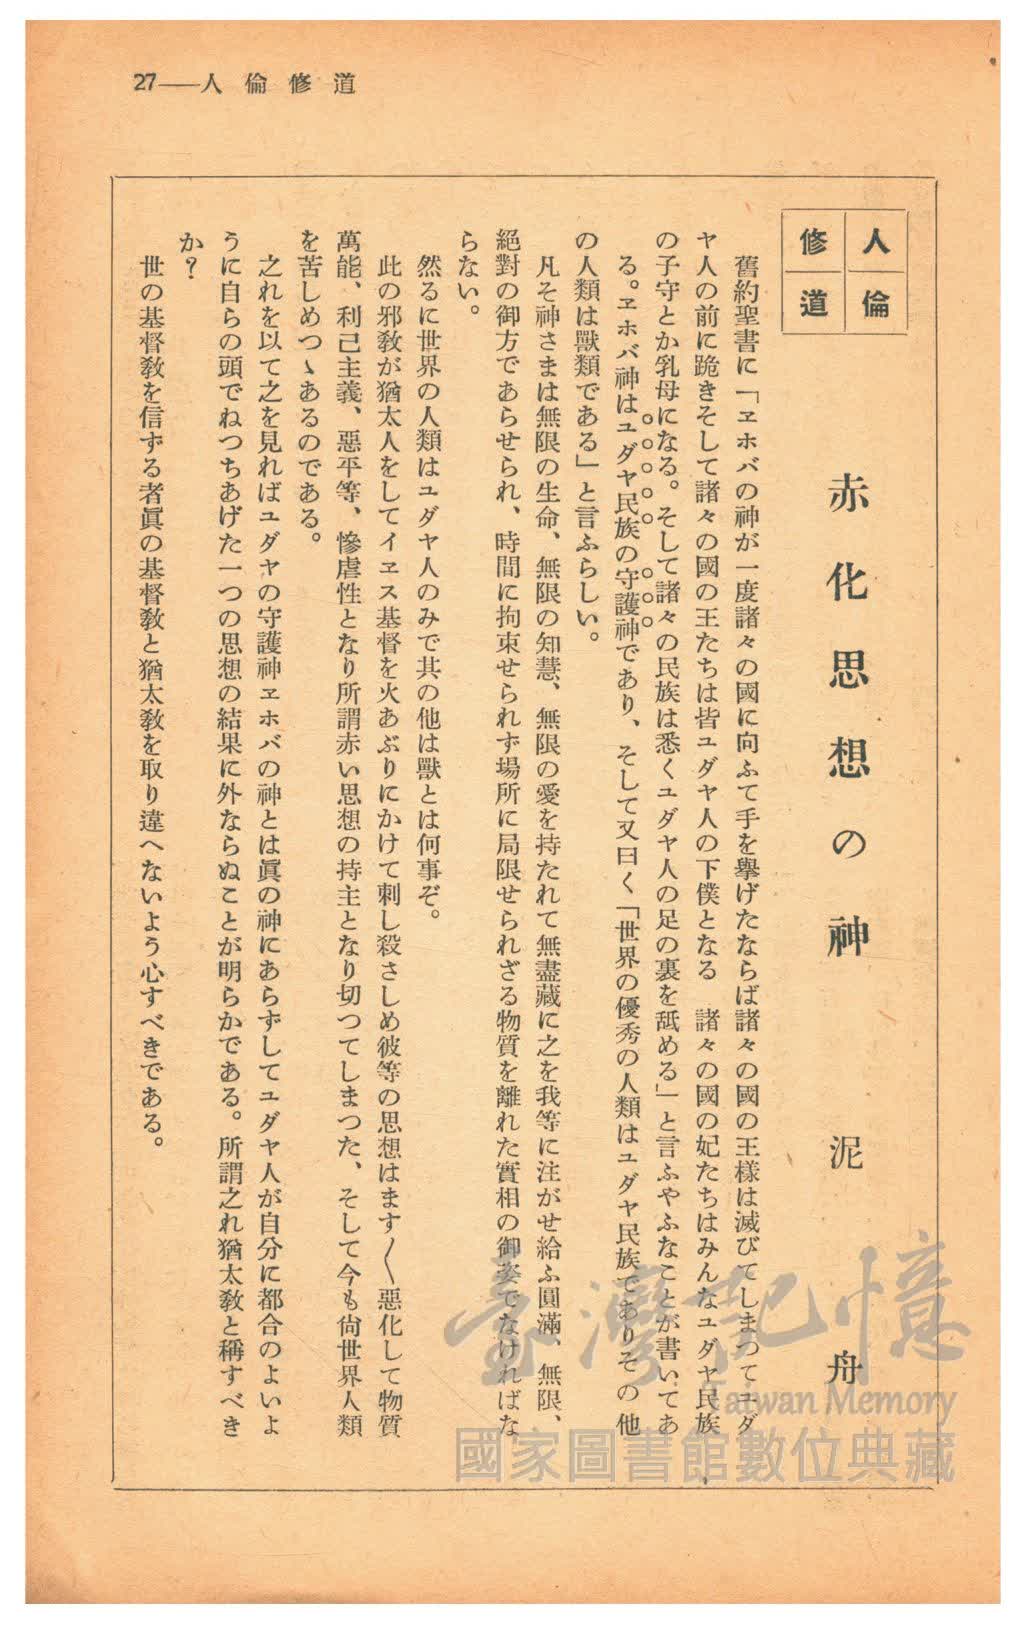 27——人倫修道
人倫
修道
赤化思想の神
泥舟
舊約聖書に「ヱホバの神が一度諸々の國に向ふて手を擧げたならば諸々の國の王樣は滅びてしまつてユダ
ヤ人の前に跪きそして諸々の國の王たちは皆ユダヤ人の下僕となる　諸々の國の妃たちはみんなユダヤ民族
の子守とか乳母になる。そして諸々の民族は悉くユダヤ人の足の裏を舐める」と言ふやふなことが書いてあ
る。ヱホバ神はユダヤ民族の守護神であり、そして又曰く「世界の優秀の人類はユダヤ民族でありその他
の人類は獸類である」と言ふらしい。
凡そ神さまは無限の生命、無限の知慧、無限の愛を持たれて無盡藏に之を我等に注がせ給ふ圓滿、無限、
絕對の御方であらせられ、時間に拘束せられず場所に局限せられざる物質を離れた實相の御姿でなければな
らない。
然るに世界の人類はユダヤ人のみで其の他は獸とは何事ぞ。
此の邪敎が猶太人をしてイヱス基督を火あぶりにかけて刺し殺さしめ彼等の思想はます〳〵惡化して物質
萬能、利己主義、惡平等、慘虐性となり所謂赤い思想の持主となり切つてしまつた、そして今も尙世界人類
を苦しめつゝあるのである。
之れを以て之を見ればユダヤの守護神ヱホバの神とは眞の神にあらずしてユダヤ人が自分に都合のよいよ
うに自らの頭でねつちあげた一つの思想の結果に外ならぬことが明らかである。所謂之れ猶太敎と稱すべき
か？
世の基督敎を信ずる者眞の基督敎と猶太敎を取り違へないよう心すべきである。
臺灣記憶
Taiwan Memory
國家圖書館數位典藏